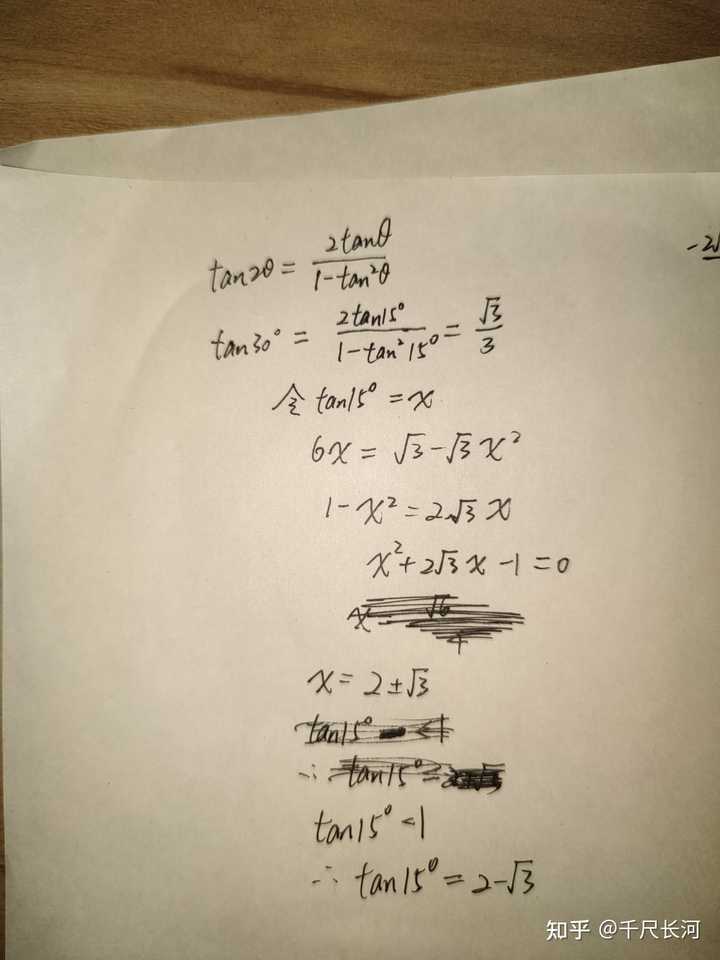 tan2θ = 2tanθ / 1-tan²θ
-2√
tan30° = 2tan15° / 1-tan²15° = √3 / 3
令 tan15° = x
6x = √3 - √3 x²
1 - x² = 2√3 x
x² + 2√3 x - 1 = 0
x = 2±√3
tan15°
∴ tan15° =
tan15° < 1
∴ tan15° = 2-√3
知乎 @千尺长河